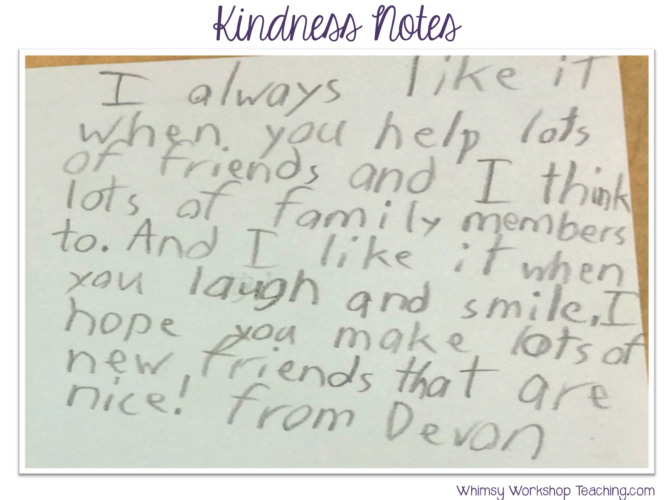 Kindness Notes
I always like it
when. you help lots
of friends and I think
lots of family members
to. And I like it when
you laugh and smile. I
hope you make lots of
new friends that are
nice! from Devon
Whimsy Workshop Teaching.com